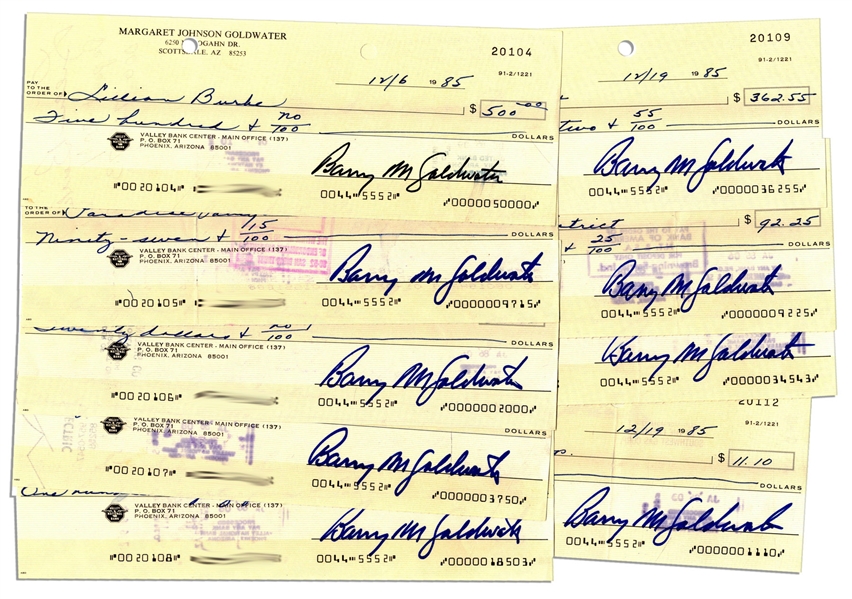 MARGARET JOHNSON GOLDWATER
6250 N. HOGAHN DR.
SCOTTSDALE, AZ 85253
20104
91-2/1221
12/6 1985
PAY TO THE ORDER OF Lillian Burke $ 500 00
Five hundred & no/100 DOLLARS
VALLEY BANK CENTER - MAIN OFFICE (137)
P. O. BOX 71
PHOENIX, ARIZONA 85001
Barry M Goldwater
⑈0020104⑈ 0044⑉5552⑈ ⑇0000050000⑇
TO THE ORDER OF Paradise
Ninety-seven & 15/100 DOLLARS
VALLEY BANK CENTER - MAIN OFFICE (137)
P. O. BOX 71
PHOENIX, ARIZONA 85001
Barry M Goldwater
⑈0020105⑈ 0044⑉5552⑈ ⑇0000009715⑇
twenty dollars & no/100 DOLLARS
VALLEY BANK CENTER - MAIN OFFICE (137)
P. O. BOX 71
PHOENIX, ARIZONA 85001
Barry M Goldwater
⑈0020106⑈ 0044⑉5552⑈ ⑇0000002000⑇
DOLLARS
VALLEY BANK CENTER - MAIN OFFICE (137)
P. O. BOX 71
PHOENIX, ARIZONA 85001
Barry M Goldwater
⑈0020107⑈ 0044⑉5552⑈ ⑇0000003750⑇
One hund
P. O. BOX 71
PHOENIX, ARIZONA 85001
Barry M Goldwater
⑈0020108⑈ 0044⑉5552⑈ ⑇0000018503⑇
20109
91-2/1221
12/19 1985
$ 362.55
two & 55/100 DOLLARS
Barry M Goldwater
0044⑉5552⑈ ⑇0000036255⑇
strict $ 92.25
& 25/100 DOLLARS
Barry M Goldwater
0044⑉5552⑈ ⑇0000009225⑇
Barry M Goldwater
0044⑉5552⑈ ⑇0000034543⑇
20112
91-2/1221
12/19 1985
$ 11.10
DOLLARS
Barry M Goldwater
0044⑉5552⑈ ⑇0000001110⑇